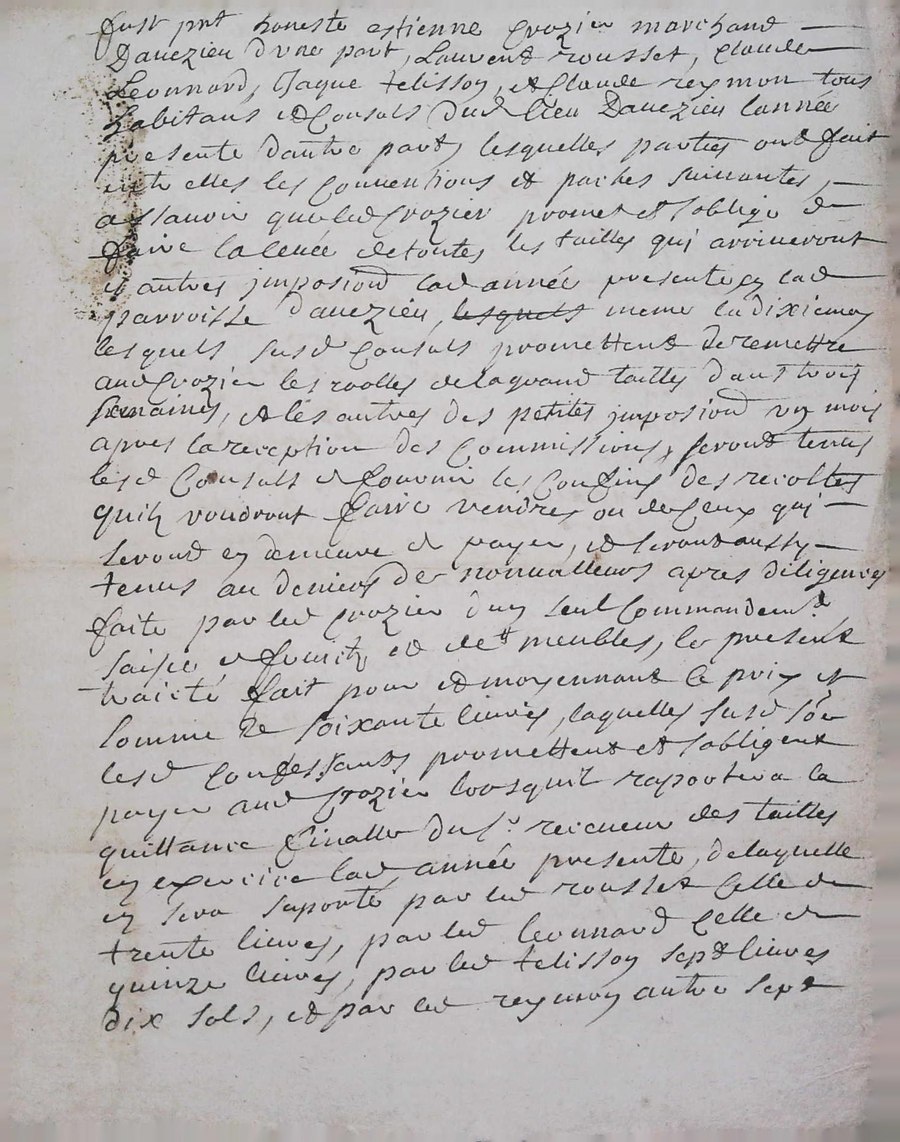 fust pnt honeste estienne Crozier marchand
Davezieu dune part, Laurend rousset, Claude
Leonnard, Jaque telisson, et Claude reymon tous
habitans et Consuls dud lieu Davezieu lannée
presente dautre part, lesquelles parties ont fait
entre elles les Conventions et paches suivantes,
assavoir que led Crozier promet et soblige de
faire la levée de toutes les tailles qui arriveront
et autres imposiond lad année presente en lad
parroisse davezieu, lesquels meme la dixieme
lesquels susd Consuls promettent de remettre
aud Crozier les roolles de la grand tailles dans trois
semaines, et les autres des petites imposiond un mois
apres la reception des Commissions, seront tenus
lesd Consuls de fournir les Confins des recoltes
quils voudront faire vendre ou de Ceux qui
seront en demeure de payer, et seront aussy
tenus au deniers de nonvalleurs apres diligences
faite par led Crozier dun seul Commandemt
saisie de fruitz et de meubles, le present
traicté fait pour et moyennant le prix et
somme de soixante livres, laquelles susd soe
lesd Confessants promettent et sobligent
payer aud Crozier lorsquil raportera la
quittance finalle du Sr. receveur des tailles
en exercice lad année presente, de laquelle
en sera suporté par led rousset Celle de
trente livres, par led leonnard Celle de
quinze livres, par led telisson sept livres
dix sols, et par led reymon autre sept